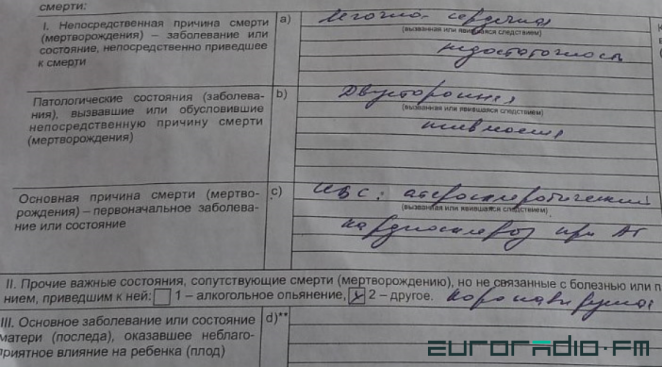 смерти:
I. Непосредственная причина смерти (мертворождения) – заболевание или состояние, непосредственно приведшее к смерти
a) Легочно-сердечная
(вызванная или явившаяся следствием)
недостаточность
Патологические состояния (заболевания), вызвавшие или обусловившие непосредственную причину смерти (мертворождения)
b) Двусторонняя
(вызванная или явившаяся следствием)
пневмония
Основная причина смерти (мертворождения) – первоначальное заболевание или состояние
c) ИБС: атеросклеротический
(вызванная или явившаяся следствием)
кардиосклероз при АГ
II. Прочие важные состояния, сопутствующие смерти (мертворождению), но не связанные с болезнью или
нием, приведшим к ней: 1 – алкогольное опьянение, x 2 – другое. Коронавирусная
III. Основное заболевание или состояние матери (последа), оказавшее неблагоприятное влияние на ребенка (плод)
d)**
euroradio.fm